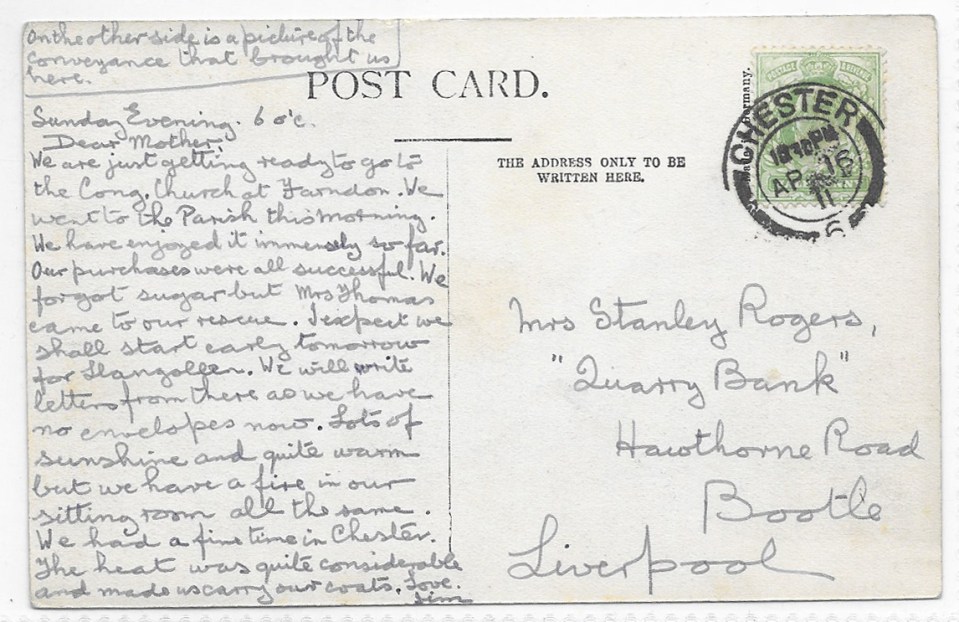 On the other side is a picture of the
conveyance that brought us
here.
POST CARD.
Sunday Evening. 6 o'c.
Dear Mother,
We are just getting ready to go to
the Cong. Church at Farndon. We
went to the Parish this morning.
We have enjoyed it immensely so far.
Our purchases were all successful. We
forgot sugar but Mrs Thomas
came to our rescue. I expect we
shall start early tomorrow
for Llangollen. We will write
letters from there as we have
no envelopes now. Lots of
sunshine and quite warm
but we have a fire in our
sitting room all the same.
We had a fine time in Chester.
The heat was quite considerable
and made us carry our coats. Love.
Jim
THE ADDRESS ONLY TO BE
WRITTEN HERE.
Germany.
CHESTER
1030PM
AP 16
11
6
Mrs Stanley Rogers,
"Quarry Bank"
Hawthorne Road
Bootle
Liverpool